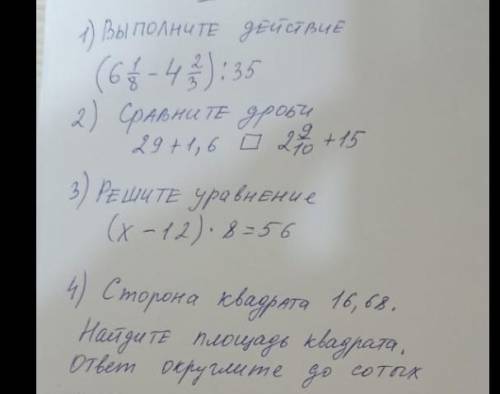 1) Выполните действие
(6 1/8 - 4 2/3) : 35
2) Сравните дроби
29 + 1,6 □ 2 9/10 + 15
3) Решите уравнение
(x - 12) · 8 = 56
4) Сторона квадрата 16,68.
Найдите площадь квадрата.
Ответ округлите до сотых